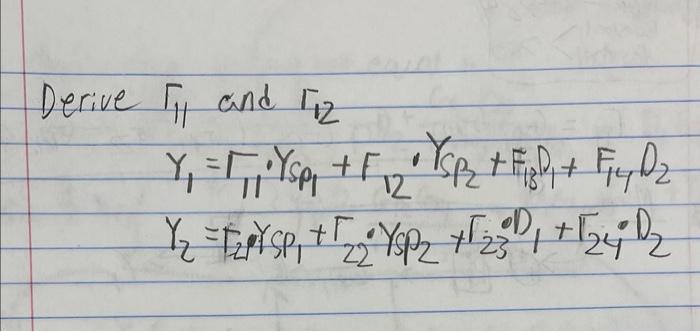 Derive Γ11 and Γ12
Y1 = Γ11·Ysp1 + Γ12·Ysp2 + Γ13D1 + Γ14D2
Y2 = Γ21·Ysp1 + Γ22·Ysp2 + Γ23·D1 + Γ24·D2